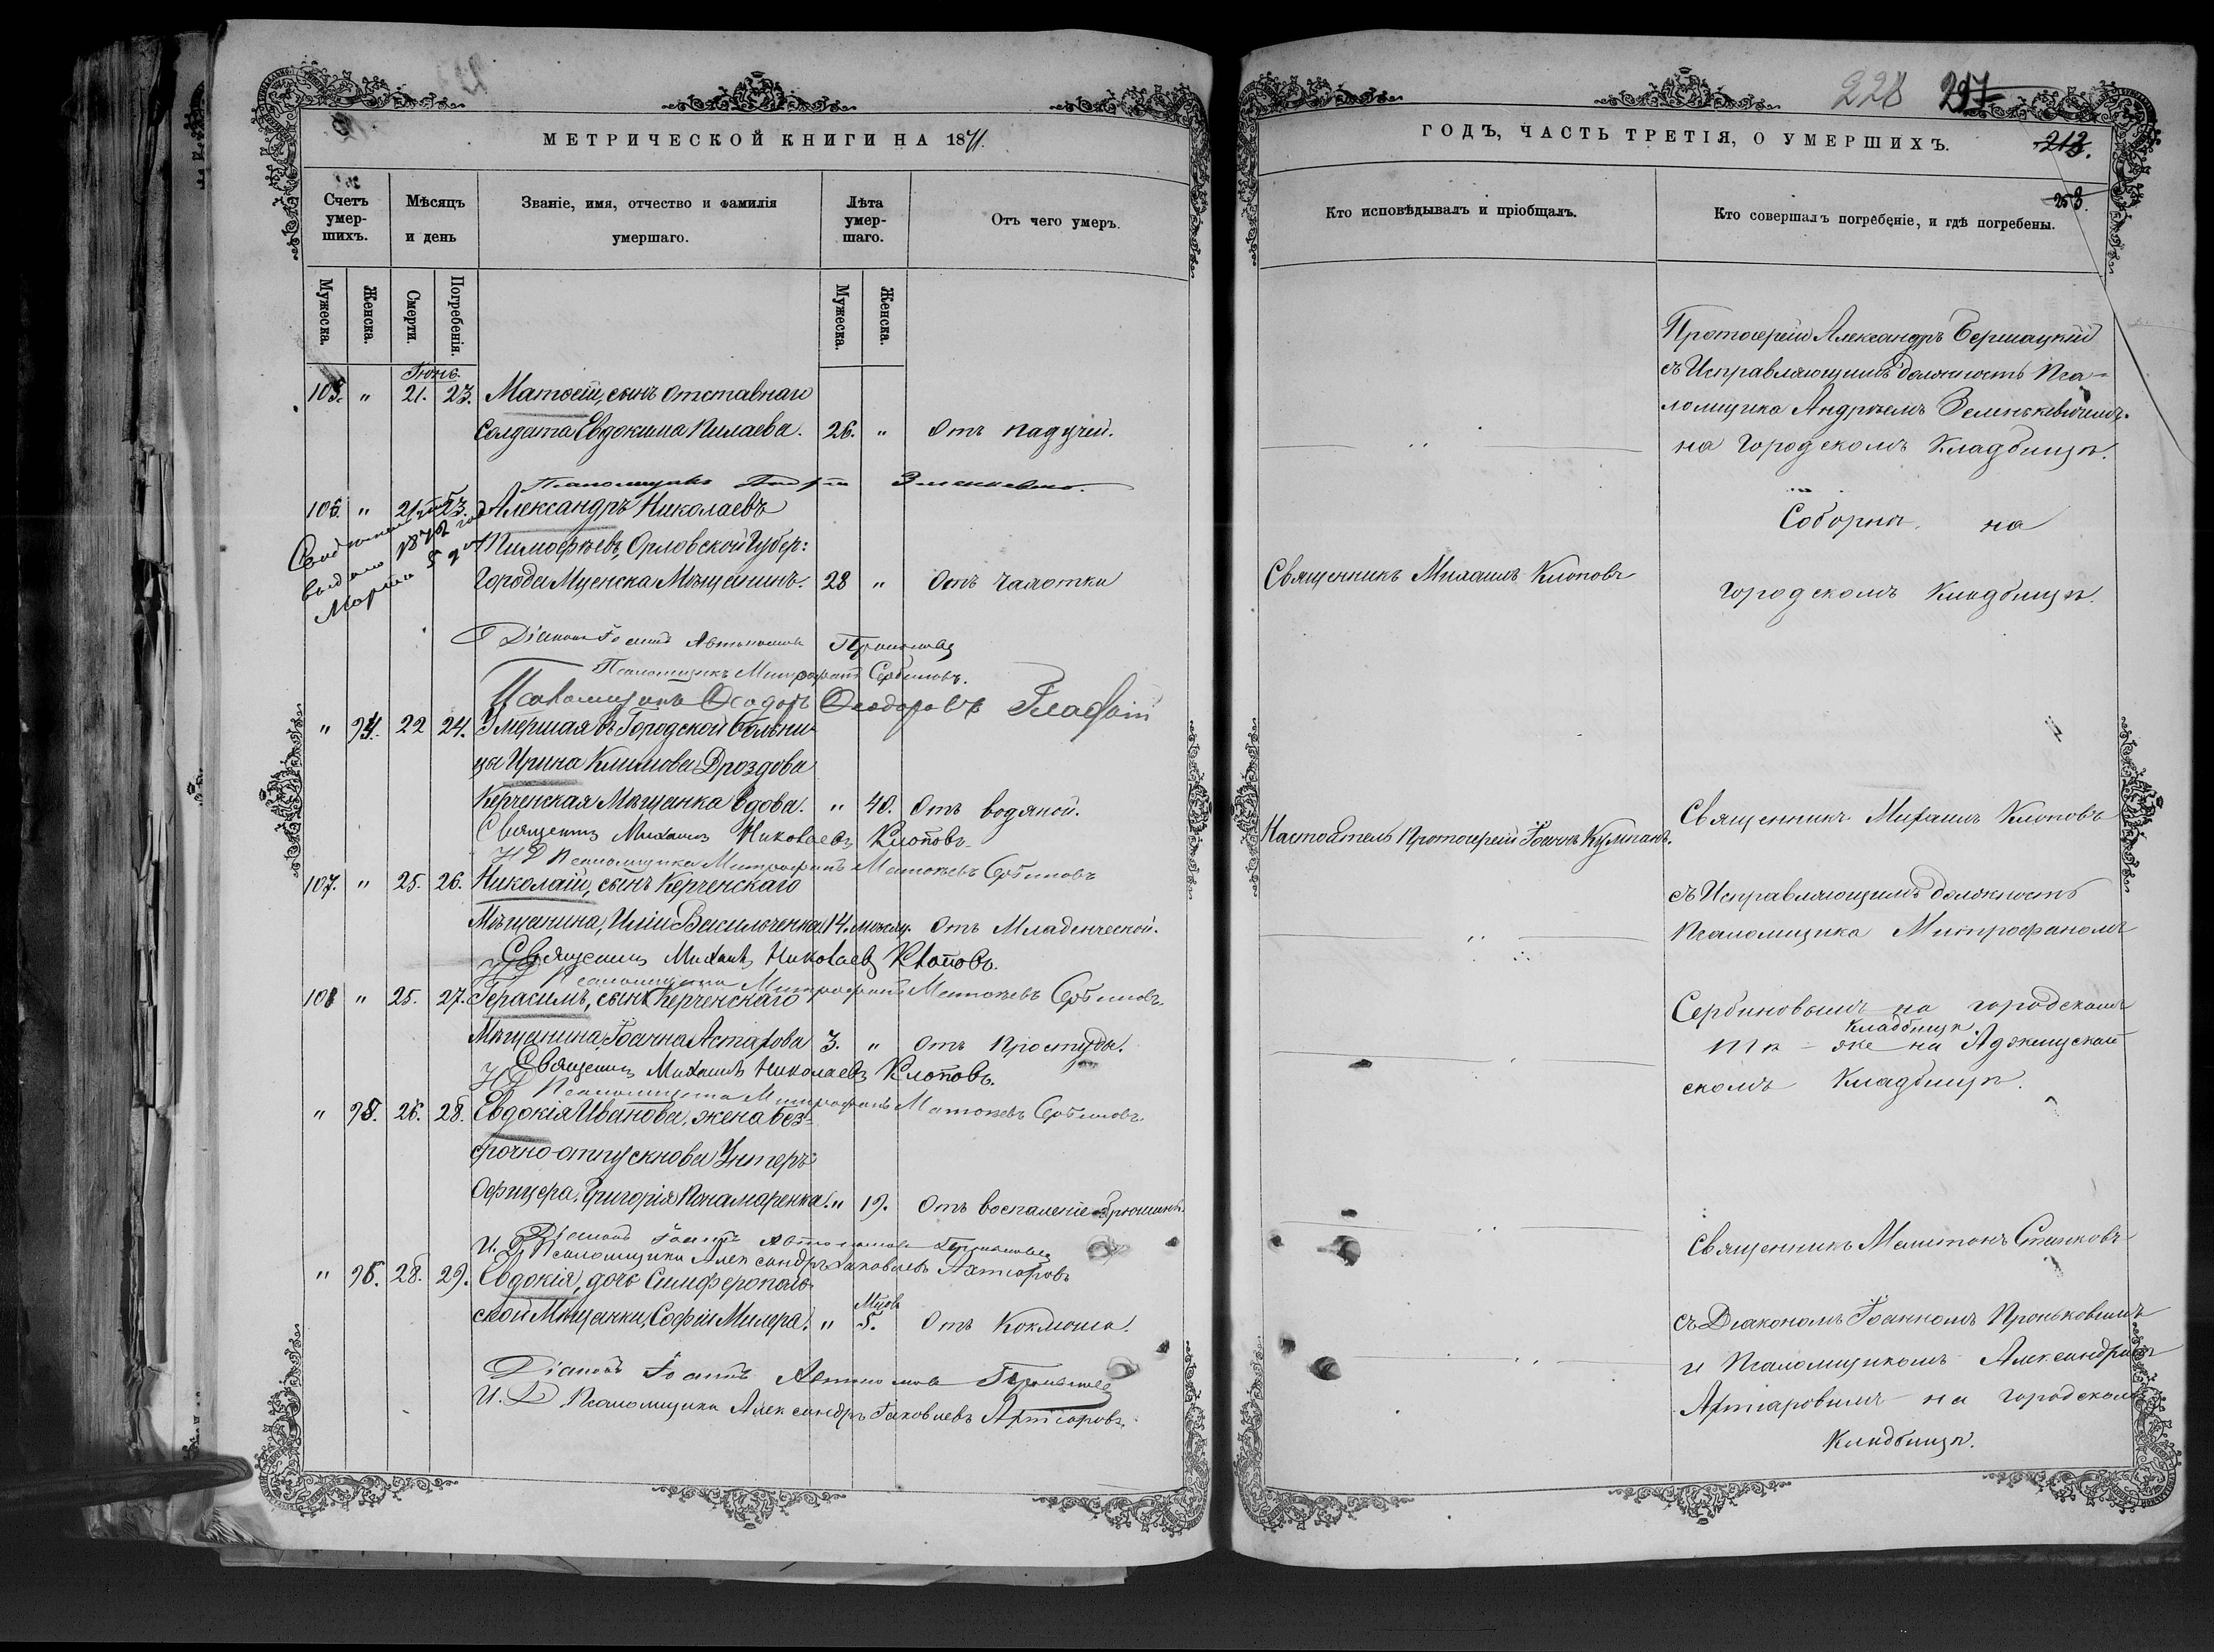 МЕТРИЧЕСКОЙ КНИГИ НА 1871.
Счетъ умер-шихъ.
Мѣсяцъ и день
Званіе, имя, отчество и фамилія умершаго.
Лѣта умер-шаго.
Отъ чего умеръ.
Мужеска. Женска. Смерти. Погребенія. Мужеска. Женска.
Іюнь.
105. " 21. 23. Матѳей, сынъ отставнаго
солдата Евдокима Пилаева. 26. " Отъ падучей.
Псаломщикъ
106. " 21. 23. Александръ Николаевъ
выдано 1872 год
Марта 5
Тимофѣевъ, Орловской Губер:
Города Мценска Мѣщанинъ. 28 " Отъ чахотки
Діаконъ Іоаннъ Автономовъ
Псаломщикъ Митрофанъ Сербиновъ.
Псаломщикъ Ѳеодоръ Ѳеодоровъ
" 94. 22 24. Умершая въ Городской больни-
цы Ирина Климова Дроздова
Керченская Мѣщанка вдова. " 40. Отъ водяной.
Священникъ Михаилъ Николаевъ Клоповъ.
И Д Псаломщика Митрофанъ Матвѣевъ Сербиновъ
107. " 25. 26. Николай, сынъ Керченскаго
Мѣщанина, Иліи Василюченка 14. мѣсяц. Отъ Младенческой.
Священникъ Михаилъ Николаевъ Клоповъ.
ИД Псаломщика Митрофанъ Матвѣевъ Сербиновъ.
108 " 25. 27. Герасимъ, сынъ Керченскаго
Мѣщанина Іоанна Астахова 3. " Отъ простуды.
Священникъ Михаилъ Николаевъ Клоповъ.
ИД Псаломщика Митрофанъ Матвѣевъ Сербиновъ.
" 95. 26. 28. Евдокія Иванова, жена без-
срочно-отпускнова Унтеръ
Офицера, Григорія Понамаренка. " 19. Отъ воспаленіе брюшины.
Діаконъ Іоаннъ Автономовъ
И. Д Псаломщика Александръ Іаковлевъ Ахтаровъ
" 96. 28. 29. Евдокія, дочь Симферополь-
ской Мѣщанки, Софіи Милера. " Мцовъ 5. Отъ Коклюша.
Діаконъ Іоаннъ Автономовъ
И. Д Псаломщика Александръ Іаковлевъ Ахтаровъ.
228 297
ГОДЪ, ЧАСТЬ ТРЕТІЯ, О УМЕРШИХЪ.
213.
253.
Кто исповѣдывалъ и пріобщалъ.
Кто совершалъ погребеніе, и гдѣ погребены.
Протоіерей Александръ Бершацкій
съ Исправляющимъ должность Пса-
ломщика Андреемъ Зеленкевичемъ.
на Городскомъ Кладбищѣ.
Соборнѣ на
Священникъ Михаилъ Клоповъ
Городскомъ Кладбищѣ.
Священникъ Михаилъ Клоповъ
Настоятель Протоіерей Іоаннъ Кумпанъ.
съ Исправляющимъ должность
Псаломщика Митрофаномъ
Сербиновымъ на городскомъ
кладбищѣ
скомъ Кладбищѣ.
Священникъ Мелитонъ Станковъ
съ Діакономъ Іоанномъ Проньковымъ
и Псаломщикомъ Александромъ
Ахтаровымъ на городскомъ
Кладбищѣ.